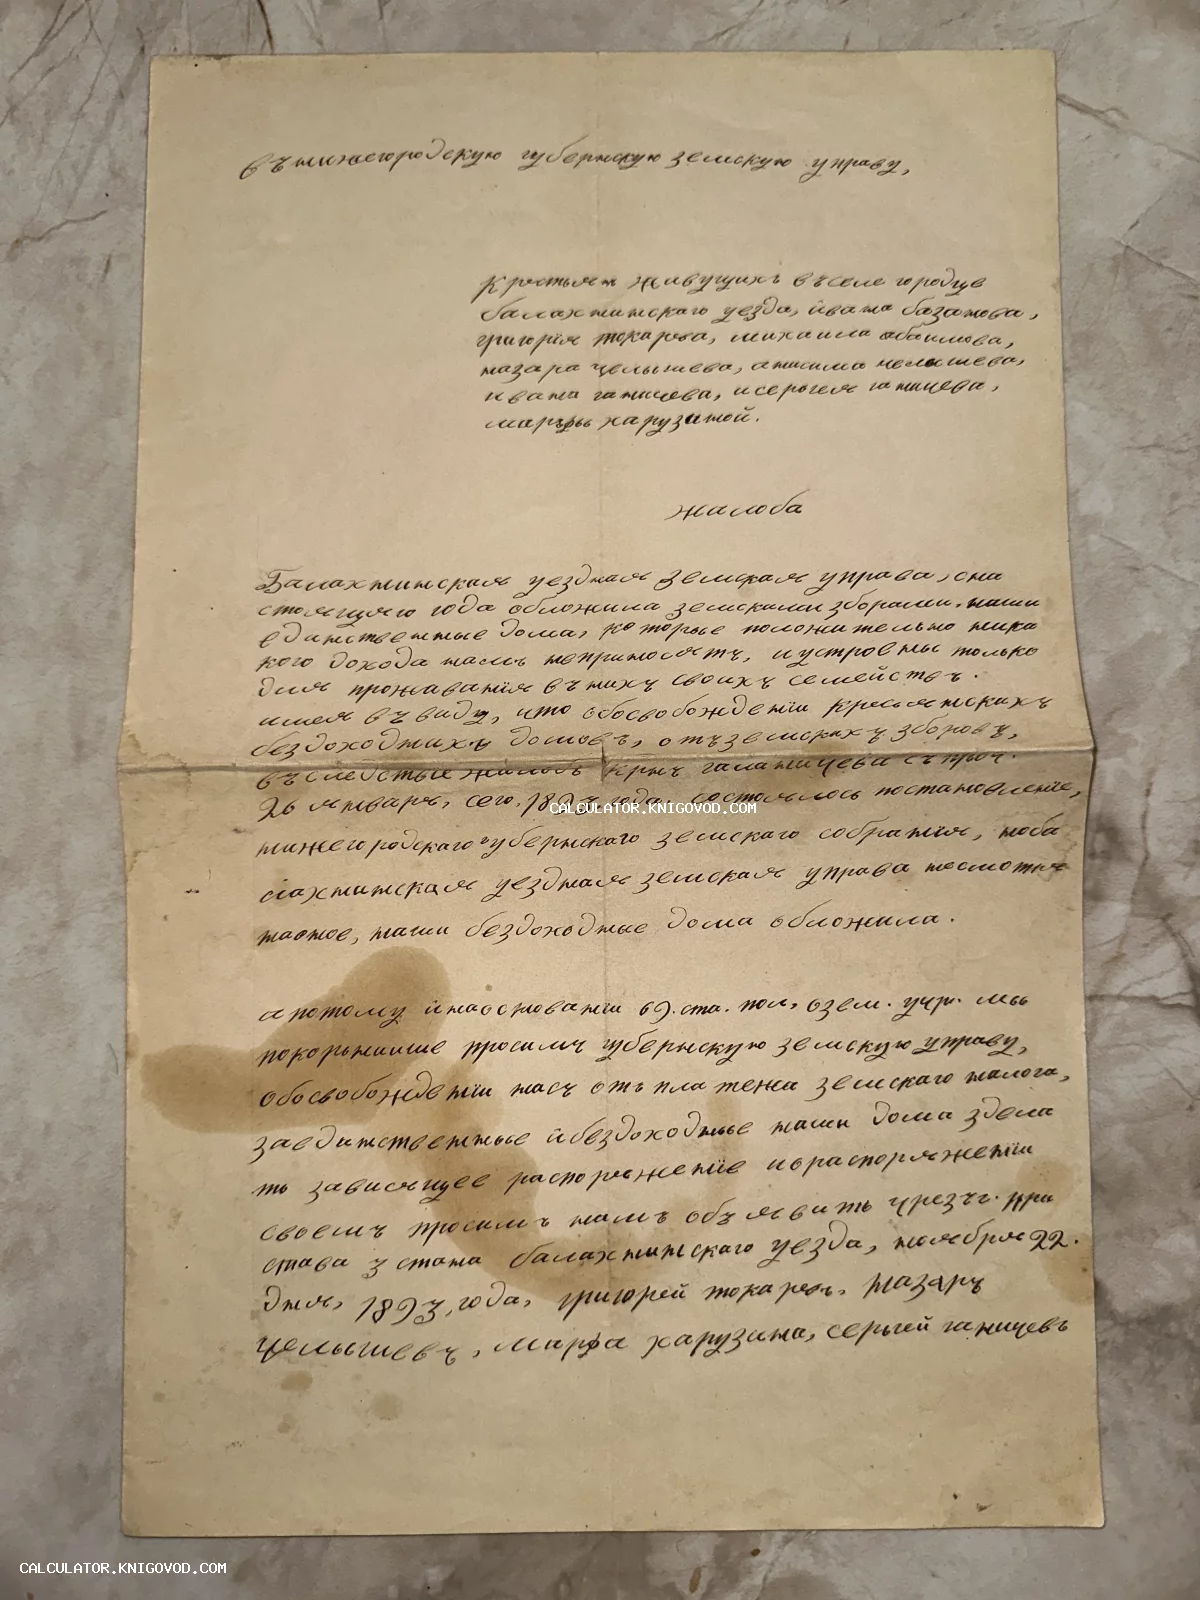 въ нижегородскую губернскую земскую управу,
крестьян живущихъ въ селе городце
балахнинскаго уезда, ивана базанова,
григорiя токарева, михаила абаимова,
назара челышева, анисима челышева,
ивана ганичева, и сергея ганичева,
марфы харузиной.
жалоба
Балахнинская уездная земская управа, сна
стоящаго года обложила земскими зборами. наши
единственные дома, которые положительно ника
кого дохода намъ неприносятъ, и устроены только
для прожаванiя въ нихъ своихъ семействъ.
имея въ виду, что обосвобожденiи крестьянскихъ
бездоходныхъ домовъ, отъ земскихъ зборовъ,
въ следствие жалобъ крнъ галаничева съ проч.
26 января, сего 1893 года, состоялось постановленiе,
нижегородскаго губернскаго земскаго собранiя, ноба
лахнинская уездная земская управа несмотря
наоное, наши бездоходные дома обложила.
а потому и наоснованiи 69. ста. пол. озем. учр. мы
покорнейше просимъ губернскую земскую управу,
обосвобожденiи насъ отъ платежа земскаго налога,
заединственные и бездоходные наши дома здела
ть зависящее распоряженiе и ораспоряженiи
своемъ просимъ намъ объявить чрезъ г. при
става 3 стана балахнинскаго уезда, ноября 22.
дня, 1893, года, григорей токаревъ, Назаръ
челышевъ, марфа харузина, сергей ганичевъ
CALCULATOR.KNIGOVOD.COM
CALCULATOR.KNIGOVOD.COM